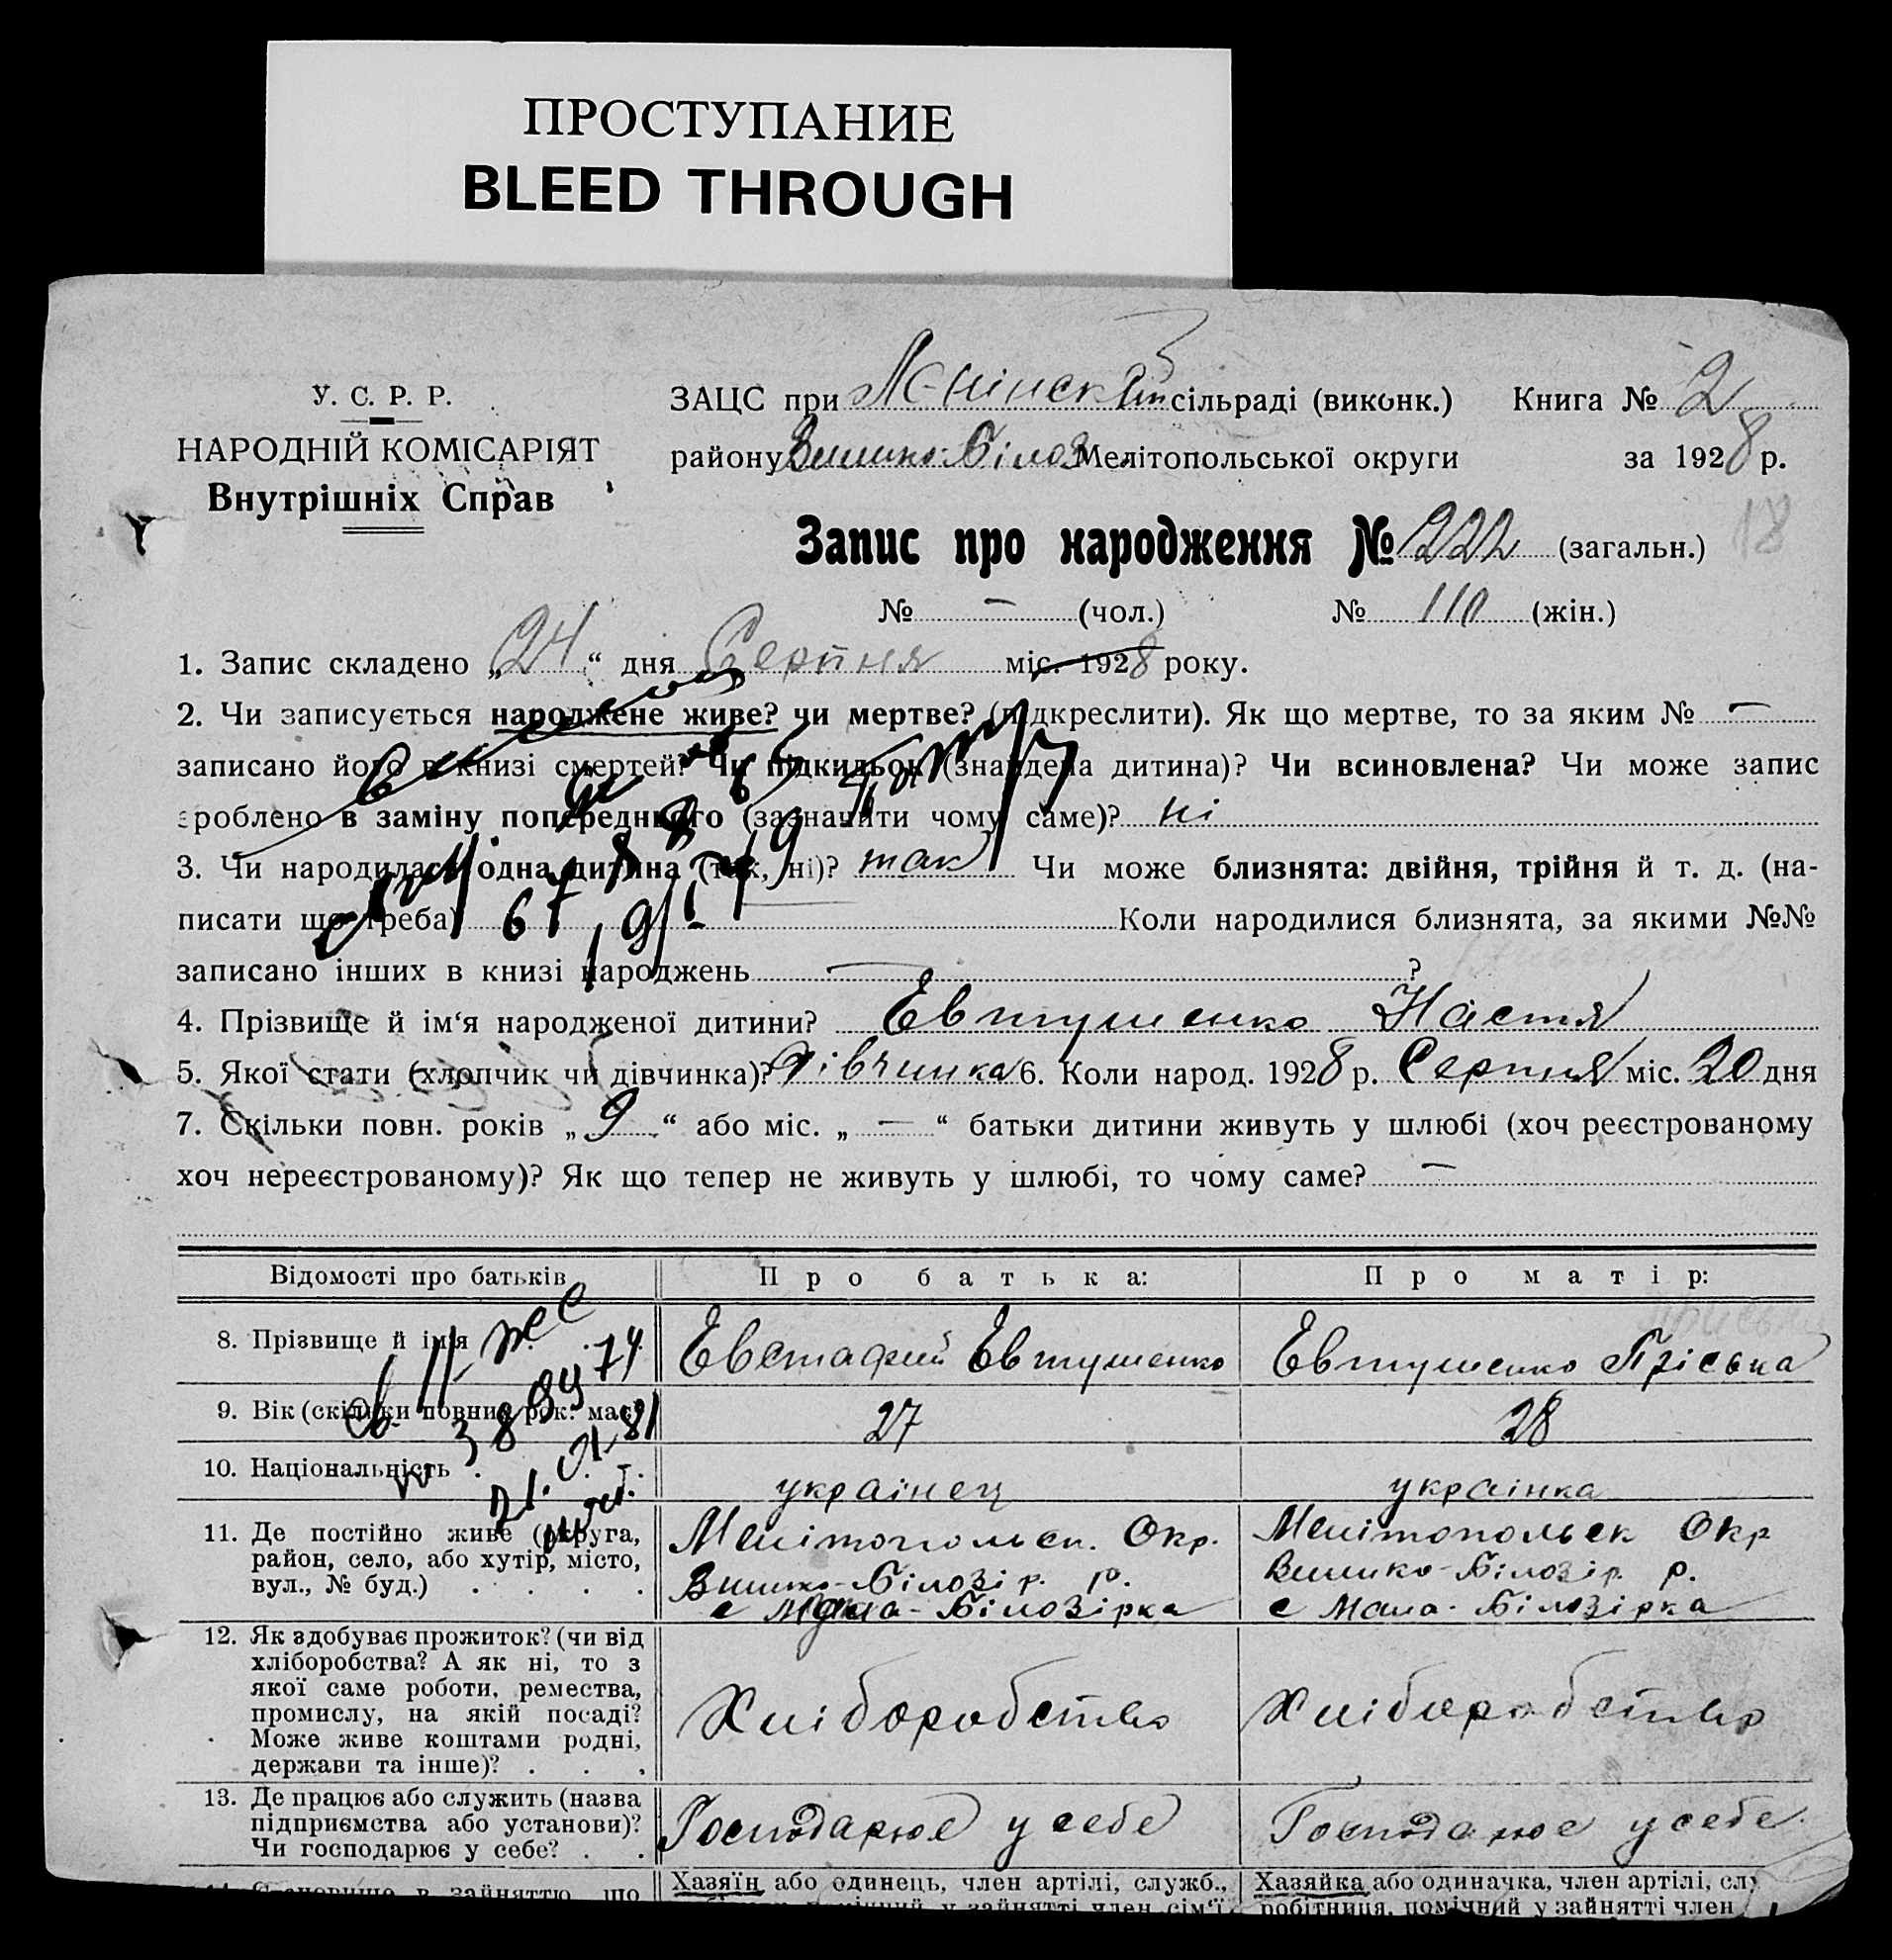 ПРОСТУПАНИЕ
BLEED THROUGH
У. С. Р. Р.
НАРОДНІЙ КОМІСАРІЯТ
Внутрішніх Справ
ЗАЦС при сільраді (виконк.) Книга № 2
району Мелітопольської округи за 1928 р.
Запис про народження № 222 (загальн.) 18
№ — (чол.) № 110 (жін.)
1. Запис складено „24“ дня Серпня міс. 1928 року.
2. Чи записується народжене живе? чи мертве? (підкреслити). Як що мертве, то за яким № —
записано його в книзі смертей? Чи підкидьок (знайдена дитина)? Чи всиновлена? Чи може запис
зроблено в заміну попереднього (зазначити чому саме)? ні
3. Чи народилась одна дитина (так, ні)? так Чи може близнята: двійня, трійня й т. д. (на-
писати що треба) Коли народилися близнята, за якими №№
записано інших в книзі народжень — ?
4. Прізвище й ім‘я народженої дитини? Евтушенко Настя
5. Якої стати (хлопчик чи дівчинка)? дівчинка 6. Коли народ. 1928 р. Серпня міс. 20 дня
7. Скільки повн. років „9“ або міс. „—“ батьки дитини живуть у шлюбі (хоч реєстрованому
хоч нереєстрованому)? Як що тепер не живуть у шлюбі, то чому саме? —
Відомості про батьків Про батька: Про матір:
8. Прізвище й імя Евстафий Евтушенко Евтушенко Пріська
9. Вік (скільки повних рок. має) 27 28
10. Національність українец українка
11. Де постійно живе (округа,
район, село, або хутір, місто,
вул., № буд.)
Мелітопольск. Окр.
Вишко-Білозір. р.
с Мала-Білозірка
Мелітопольск Окр
Вишко-Білозір. р.
с Мала-Білозірка
12. Як здобуває прожиток? (чи від
хліборобства? А як ні, то з
якої саме роботи, ремества,
промислу, на якій посаді?
Може живе коштами родні,
держави та інше)?
Хліборобство
Хліборобство
13. Де працює або служить (назва
підприємства або установи)?
Чи господарює у себе?
Господарює у себе
Господарює у себе.
Хазяїн або одинець, член артілі, служб.,
Хазяйка або одиначка, член артілі, слу
робітниця, помічний у зайнятті член